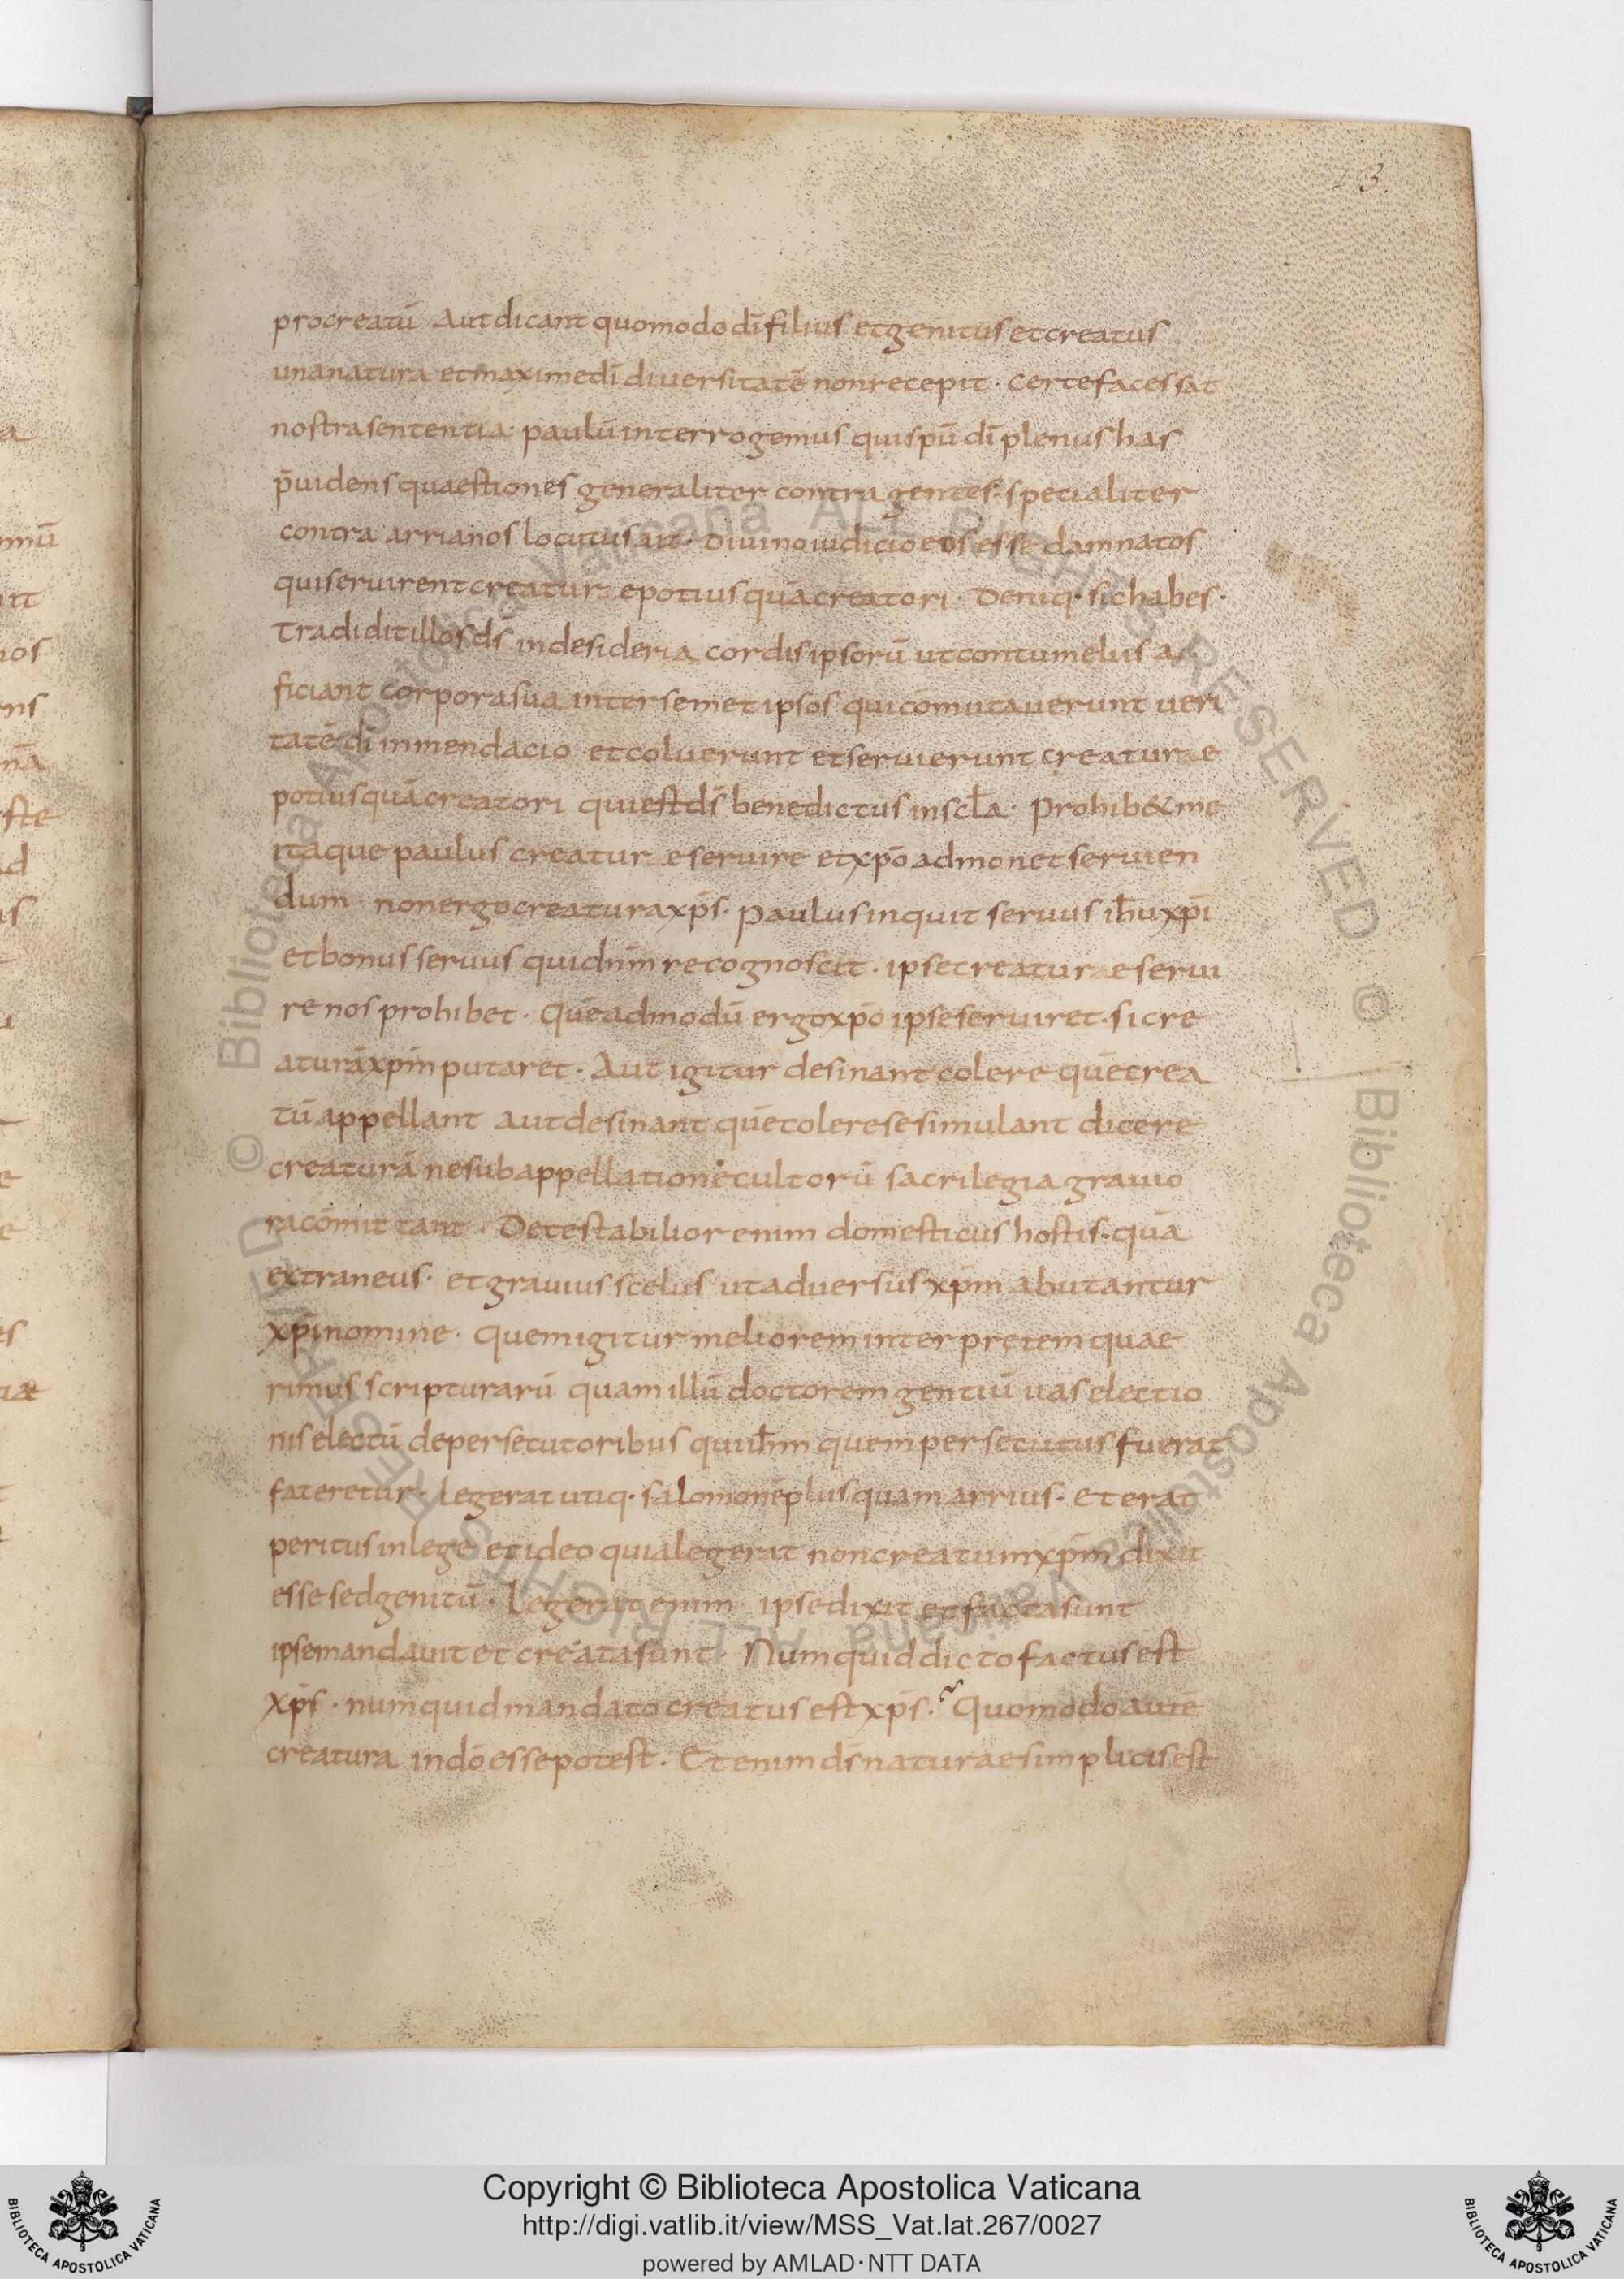 13.
procreatū Aut dicant quomodo dī filius et genitus et creatus
una natura et maxime dī diversitatē non recepit · certe facessat
nostra sententia · paulū interrogemus qui spū dī plenus has
p̄uidens quaestiones generaliter contra gentes · specialiter
contra arrianos locutus ait · Diuino iudicio eos esse damnatos
qui seruirent creaturae potius quā creatori · Deniq· sic habes ·
Tradidit illos ds̄ in desideria cordis ipsorū ut contumeliis
ficiant corpora sua inter semet ipsos qui cōmutauerunt ueri
tatē dī in mendacio et coluerunt et seruierunt creaturae
potius quā creatori qui est ds̄ benedictus in scl̄a · Prohib& me
itaque paulus creaturae seruire et xp̄o admonet seruien
dum non ergo creatura xp̄s · Paulus inquit seruus ih̄u xp̄i
et bonus seruus qui dn̄m recognoscit · ipse creaturae serui
re nos prohibet · Quēadmodū ergo xp̄o ipse seruiret · si cre
aturā xp̄m putaret · Aut igitur desinant colere quē crea
tū appellant aut desinant quē colere se simulant dicere
creaturā ne sub appellatione cultorū sacrilegia grauio
ra cōmittant · Detestabilior enim domesticus hostis · quā
extraneus · et grauius scelus ut aduersus xp̄m abutantur
xp̄i nomine · Quem igitur meliorem interpretem quae
rimus scripturarū quam illū doctorem gentiū uas electio
nis electū de persecutoribus qui ih̄m quem persecutus fuerat
fateretur · Legerat utiq· salomonē plus quam arrius · et erat
peritus in lege et ideo quia legerat non creatum xp̄m dixit
esse sed genitū · Legerat enim · ipse dixit et facta sunt
ipse mandauit et creata sunt · Numquid dicto factus est
xp̄s · numquid mandato creatus est xp̄s · Quomodo autē
creatura in dō esse potest · Etenim ds̄ naturae simplicis est
© Biblioteca Apostolica Vaticana ALL RIGHTS RESERVED
© Biblioteca Apostolica Vaticana ALL RIGHTS RESERVED
BIBLIOTECA APOSTOLICA VATICANA
Copyright © Biblioteca Apostolica Vaticana
http://digi.vatlib.it/view/MSS_Vat.lat.267/0027
powered by AMLAD · NTT DATA
BIBLIOTECA APOSTOLICA VATICANA